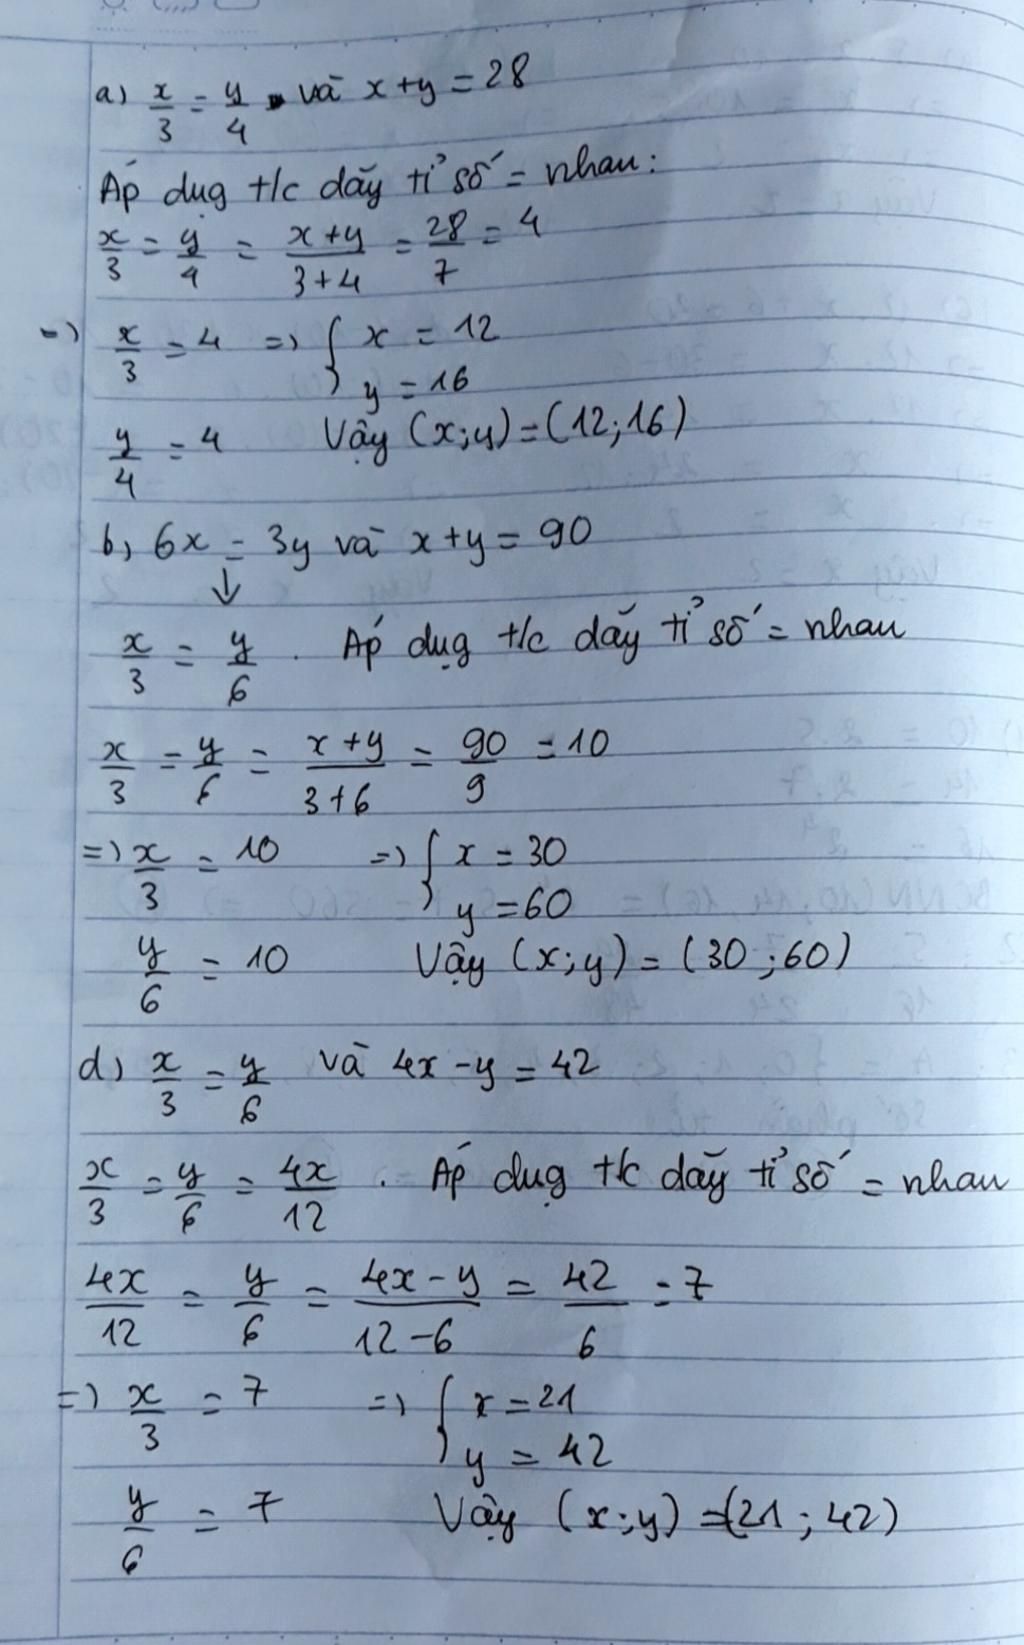 a) x/3 = y/4 và x+y = 28
Áp dụg t/c dãy tỉ số = nhau:
x/3 = y/4 = (x+y)/(3+4) = 28/7 = 4
=) x/3 = 4 =) { x = 12
y = 16
y/4 = 4 Vậy (x;y) = (12;16)
b, 6x = 3y và x+y = 90
↓
x/3 = y/6 . Áp dụg t/c dãy tỉ số = nhau
x/3 = y/6 = (x+y)/(3+6) = 90/9 = 10
=) x/3 = 10 =) { x = 30
y = 60
y/6 = 10 Vậy (x;y) = (30;60)
d) x/3 = y/6 và 4x-y = 42
x/3 = y/6 = 4x/12 . Áp dụg t/c dãy tỉ số = nhau
4x/12 = y/6 = (4x-y)/(12-6) = 42/6 = 7
=) x/3 = 7 =) { x = 21
y = 42
y/6 = 7 Vậy (x;y) = (21;42)